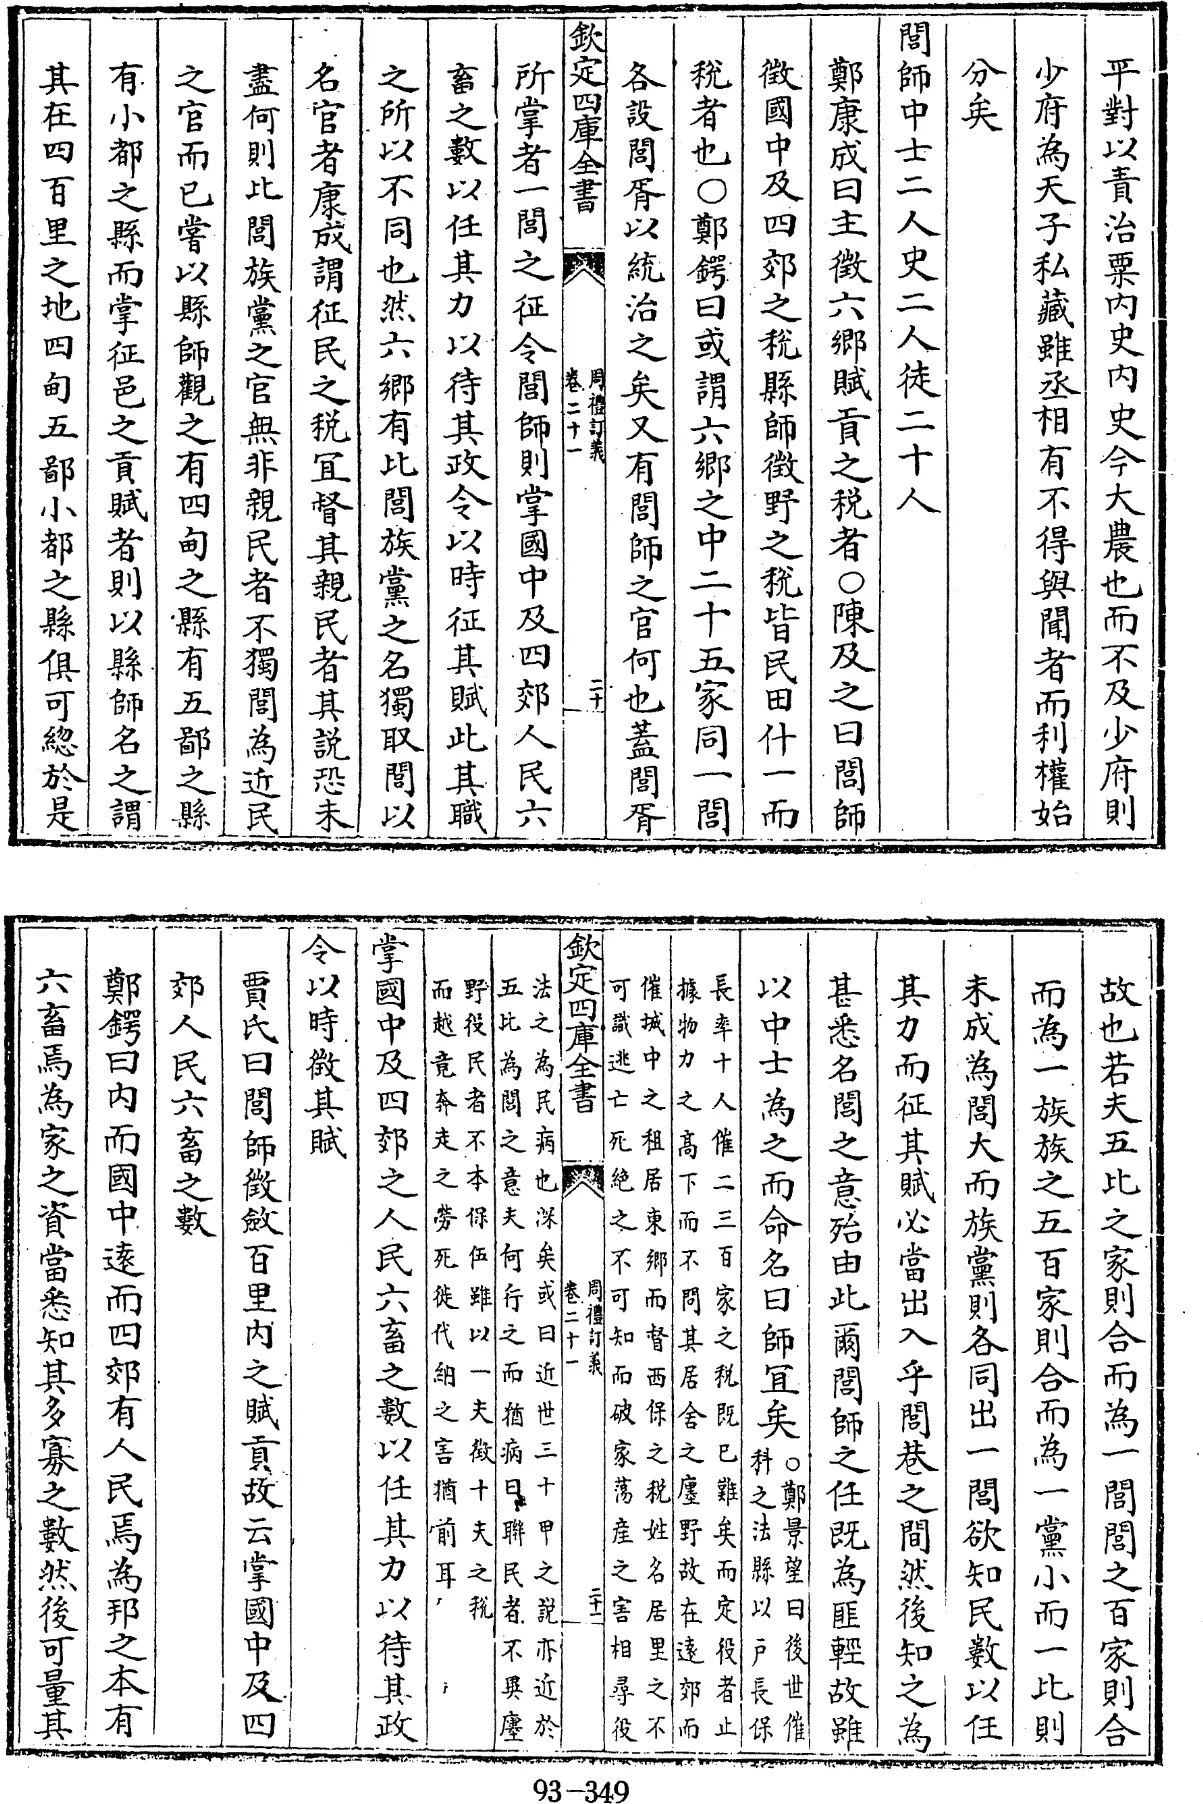 平對以責治粟內史內史今大農也而不及少府則
少府為天子私藏雖丞相有不得與聞者而利權始
分矣
閭師中士二人史二人徒二十人
鄭康成曰主徵六鄉賦貢之税者○陳及之曰閭師
徵國中及四郊之税縣師徵野之税皆民田什一而
税者也○鄭鍔曰或謂六鄉之中二十五家同一閭
各設閭胥以統治之矣又有閭師之官何也蓋閭胥
欽定四庫全書
周禮訂義
卷二十一
二十
所掌者一閭之征令閭師則掌國中及四郊人民六
畜之數以任其力以待其政令以時征其賦此其職
之所以不同也然六鄉有比閭族黨之名獨取閭以
名官者康成謂征民之税宜督其親民者其説恐未
盡何則比閭族黨之官無非親民者不獨閭為近民
之官而已嘗以縣師觀之有四甸之縣有五鄙之縣
有小都之縣而掌征邑之貢賦者則以縣師名之謂
其在四百里之地四甸五鄙小都之縣俱可總於是
故也若夫五比之家則合而為一閭閭之百家則合
而為一族族之五百家則合而為一黨小而一比則
未成為閭大而族黨則各同出一閭欲知民數以任
其力而征其賦必當出入乎閭巷之間然後知之為
甚悉名閭之意殆由此爾閭師之任既為匪輕故雖
以中士為之而命名曰師宜矣
○鄭景望曰後世催
科之法縣以户長保
長率十人催二三百家之税既已難矣而定役者止
據物力之髙下而不問其居舍之廛野故在逺郊而
催城中之租居東鄉而督西保之税姓名居里之不
可識逃亡死絶之不可知而破家蕩産之害相尋役
欽定四庫全書
周禮訂義
卷二十一
二十一
法之為民病也深矣或曰近世三十甲之説亦近於
五比為閭之意夫何行之而猶病曰聨民者不異廛
野役民者不本保伍雖以一夫徵十夫之税
而越竟奔走之勞死徙代納之害猶前耳
掌國中及四郊之人民六畜之數以任其力以待其政
令以時徵其賦
賈氏曰閭師徵斂百里内之賦貢故云掌國中及四
郊人民六畜之數
鄭鍔曰内而國中逺而四郊有人民焉為邦之本有
六畜焉為家之資當悉知其多寡之數然後可量其
93-349